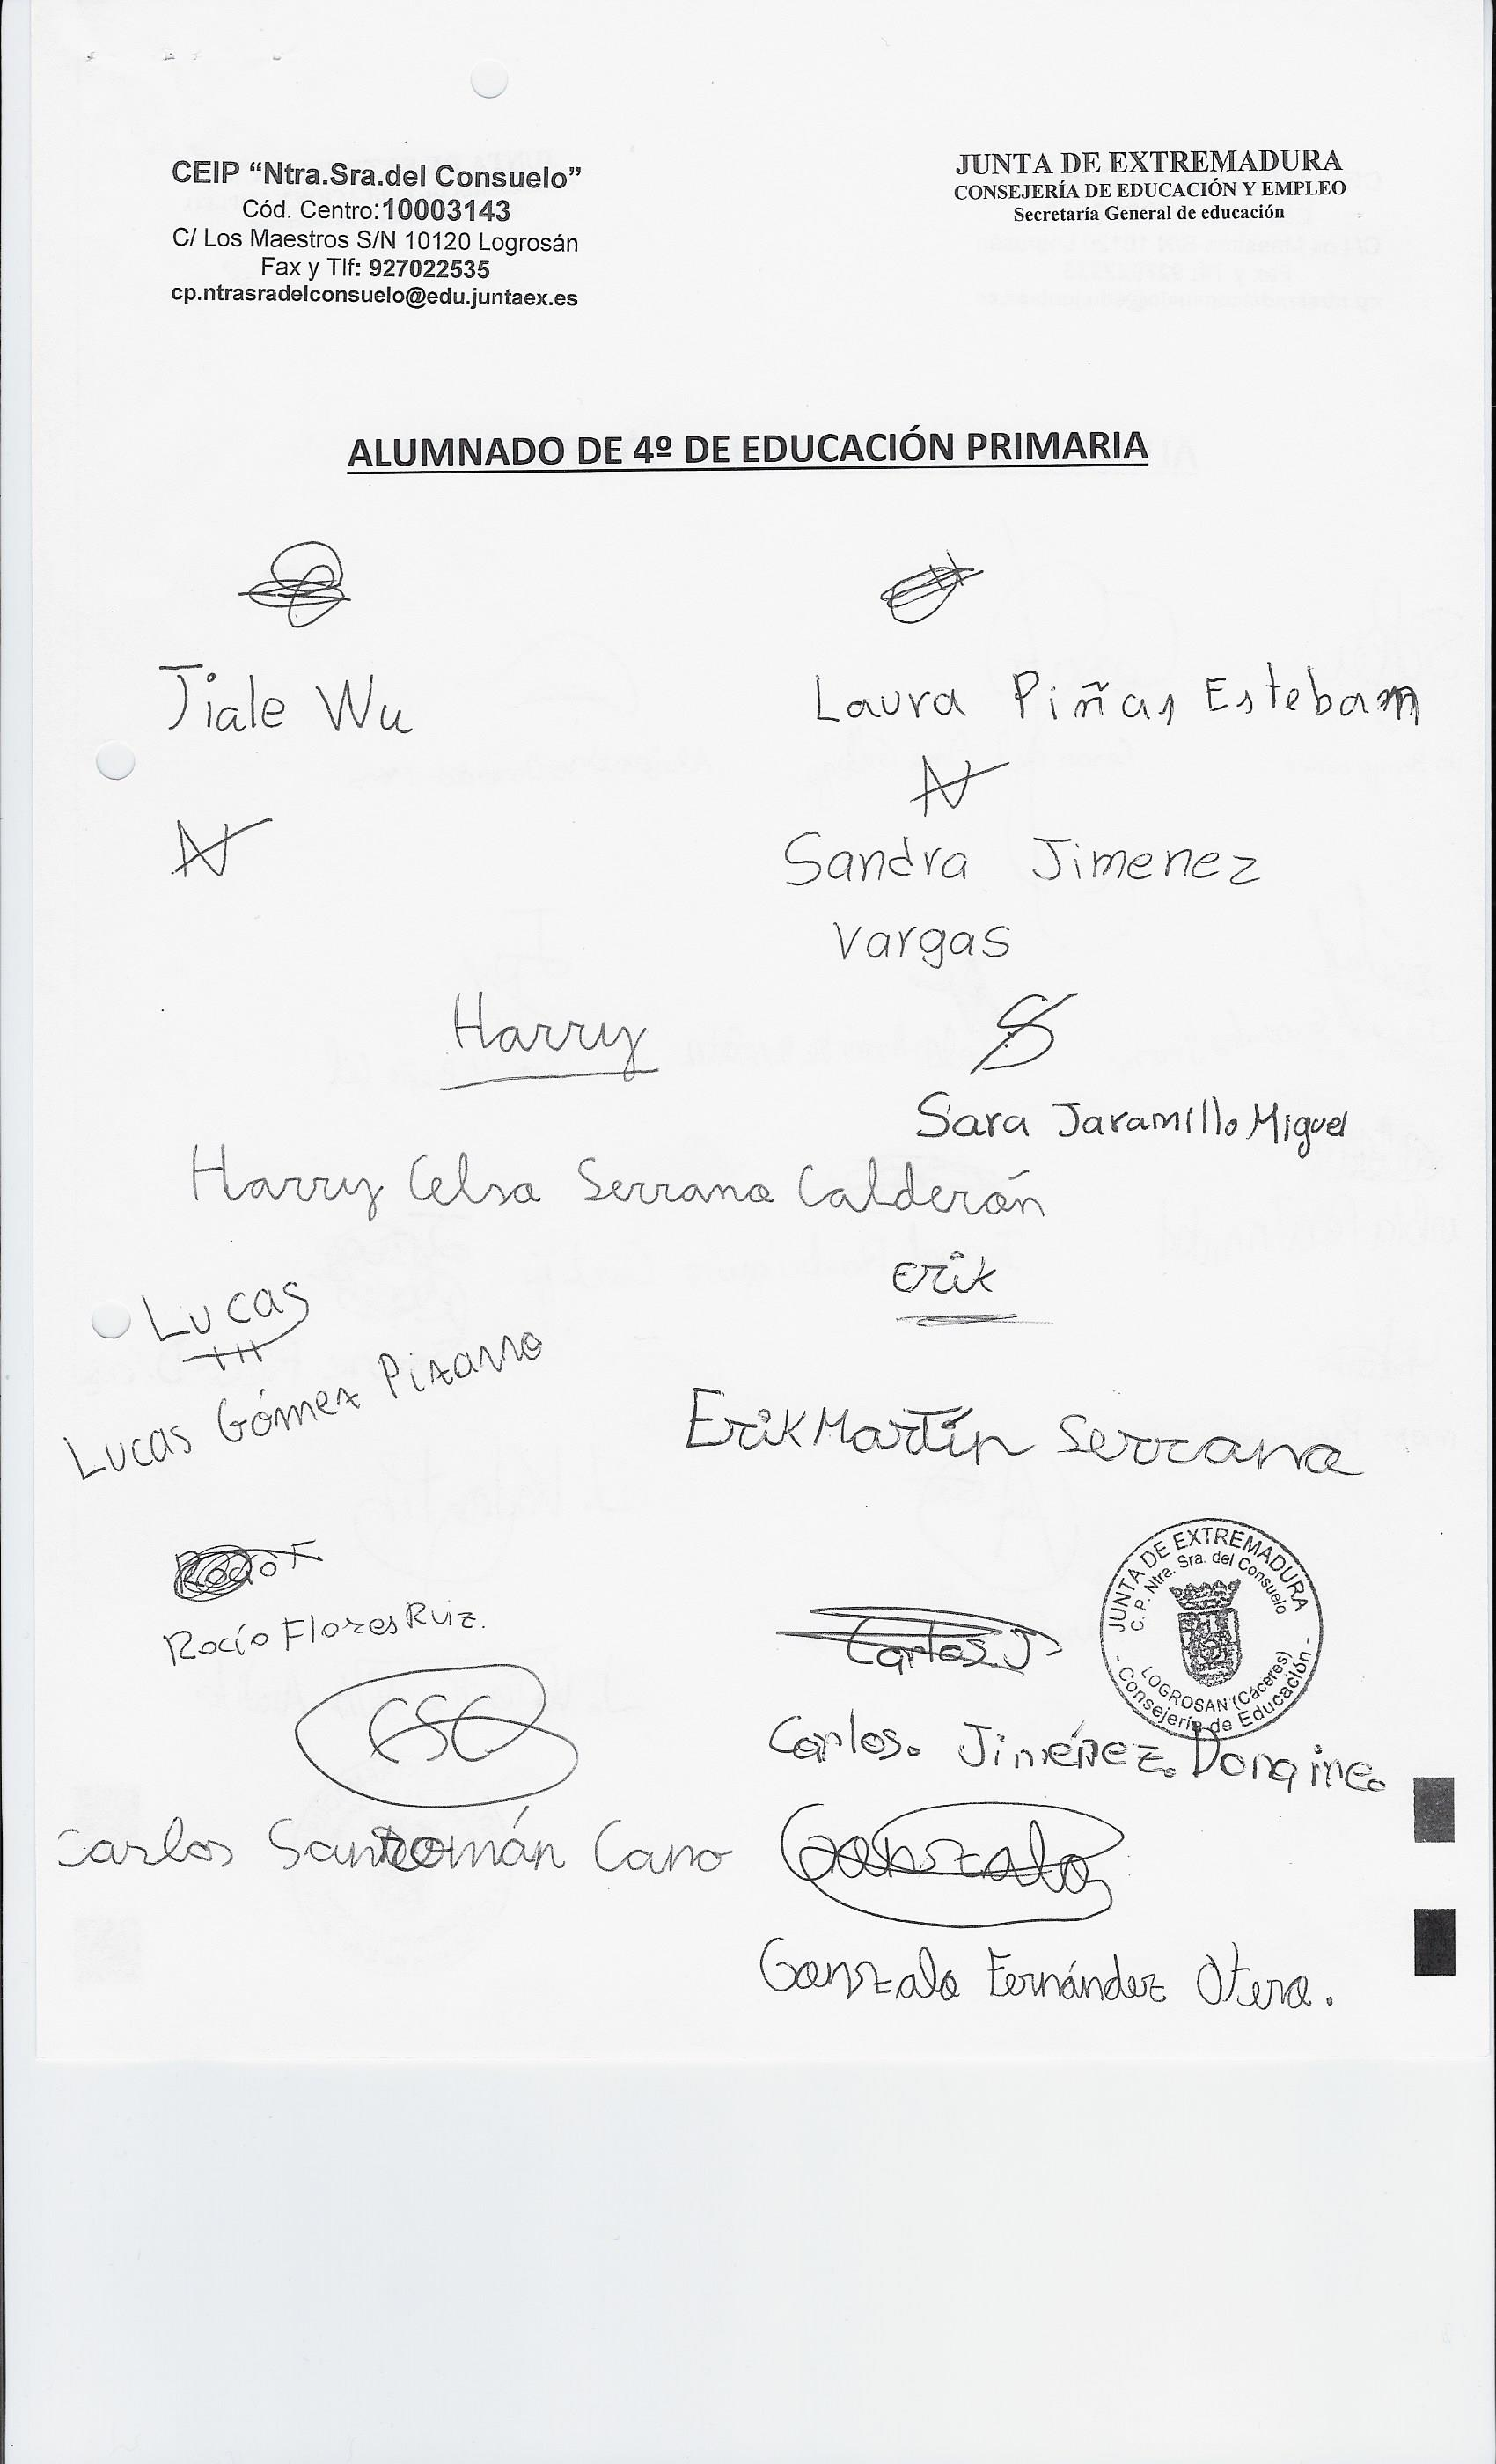 CEIP “Ntra.Sra.del Consuelo”
Cód. Centro:10003143
C/ Los Maestros S/N 10120 Logrosán
Fax y Tlf: 927022535
cp.ntrasradelconsuelo@edu.juntaex.es
JUNTA DE EXTREMADURA
CONSEJERÍA DE EDUCACIÓN Y EMPLEO
Secretaría General de educación
ALUMNADO DE 4º DE EDUCACIÓN PRIMARIA
Jiale Wu
Laura Piñas Esteban
Sandra Jimenez
Vargas
Harry
Sara Jaramillo Miguel
Harry Celso Serrano Calderón
erik
Lucas
Lucas Gómez Pizarro
Erik Martín Serrano
Rocío F
Rocío Flores Ruiz.
Carlos.J
JUNTA DE EXTREMADURA
C. P. Ntra. Sra. del Consuelo
LOGROSAN (Cáceres)
- Consejería de Educación -
CSC
Carlos. Jiménez.
Carlos Sanromán Cano
Gonzalo
Gonzalo Fernández Otero.